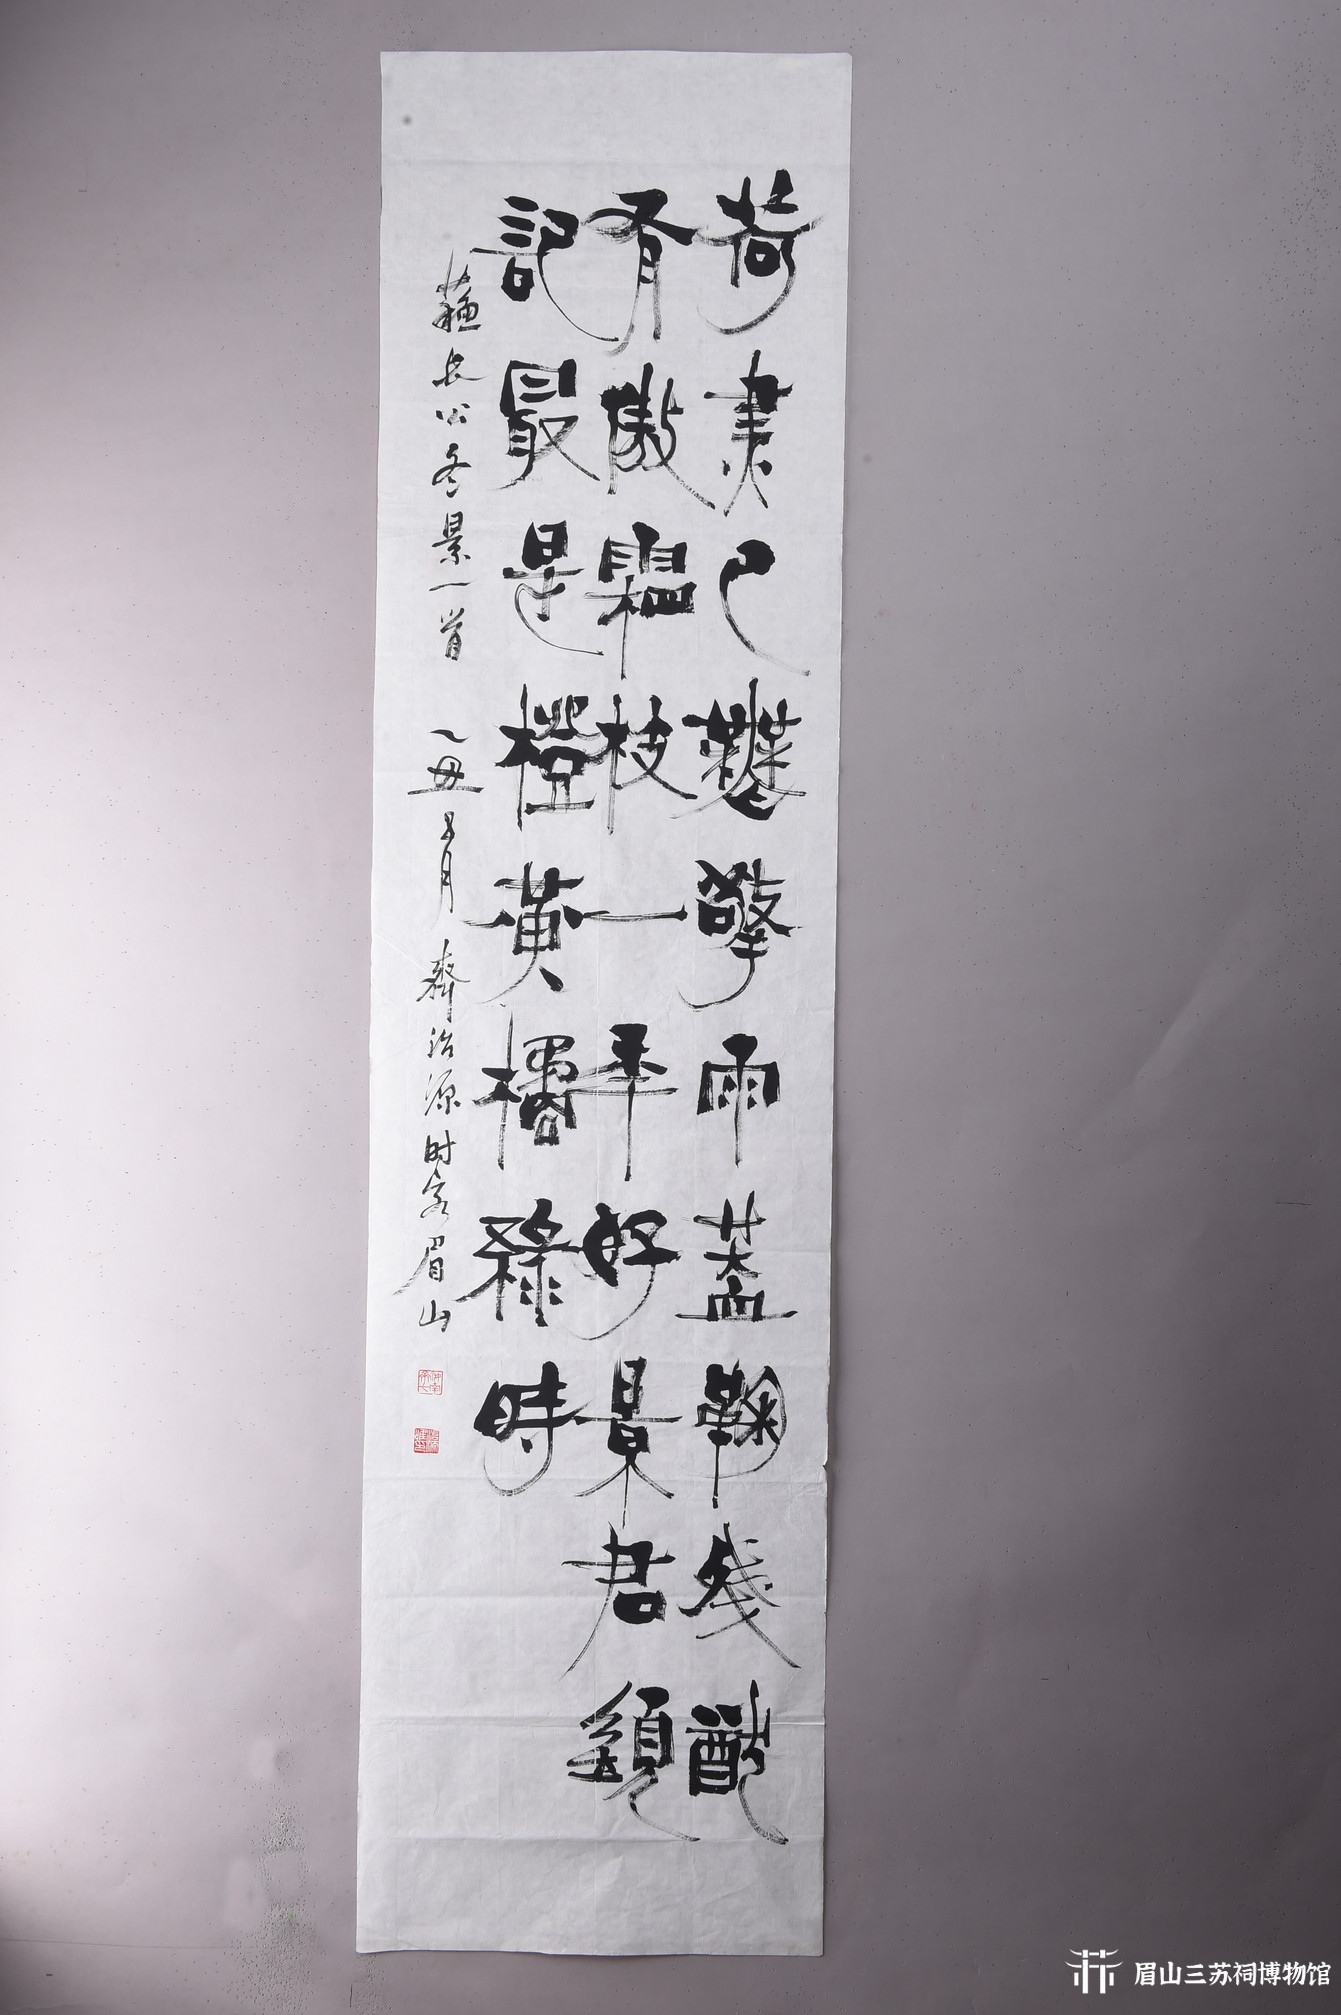 荷盡已無擎雨蓋鞠殘猶
有傲霜枝一年好景君須
記最是橙黃橘綠時
蘇長公冬景一首 乙丑月 齊治源时客眉山
眉山三苏祠博物馆